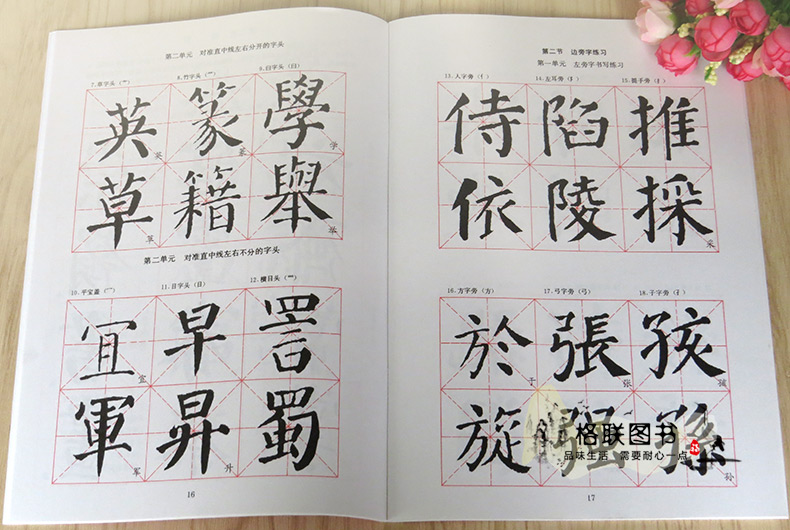 第二单元 对准直中线左右分开的字头
7.草字头(艹) 8.竹字头(⺮) 6.臼字头(臼)
英 篆 學
篆 学
草 籍 舉
草 举
第二单元 对准直中线左右不分的字头
10.平宝盖(冖) 11.日字头(日) 12.横目头(罒)
冝 早 詈
宜
軍 昇 蜀
军 升
16
第二节 边旁字练习
第一单元 左旁字书写练习
13.人字旁(亻) 14.左耳旁(阝) 15.提手旁(扌)
侍 陷 推
依 陵 採
采
16.方字旁(方) 17.弓字旁(弓) 18.子字旁(孑)
於 張 孩
于 张
旋 強 孫
孙
17
格联图书
品味生活 需要耐心一点